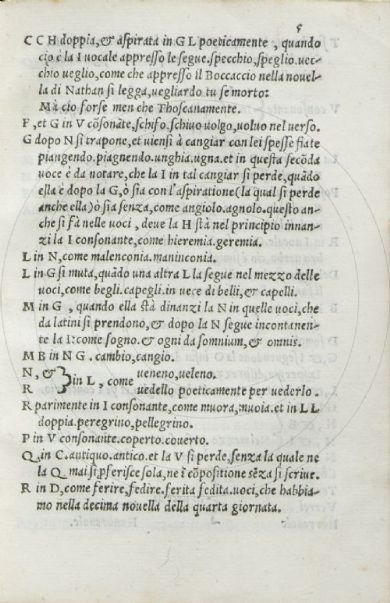 5
C C H doppia, & aspirata in G L poeticamente, quando
cio è la I uocale appresso le segue. specchio, speglio. uec-
chio ueglio, come che appresso il Boccaccio nella nouel-
la di Nathan si legga, uegliardo tu se morto:
Mà cio forse men che Thoscanamente.
F, et G in V cōsonāte, schifo. schiuo uolgo, uoluo nel uerso.
G dopo N si trapone, et uiensi à cangiar con lei spesse fiate
piangendo. piagnendo. unghia. ugna. et in questa secōda
uoce è da notare, che la I in tal cangiar si perde, quādo
ella è dopo la G, ò sia con l'aspiratione (la qual si perde
anche ella) ò sia senza, come angiolo. agnolo. questo an-
che si fà nelle uoci, deue la H stà nel principio innan-
zi la I consonante, come hieremia. geremia.
L in N, come malenconia. maninconia.
L in G si muta, quādo una altra L la segue nel mezzo delle
uoci, come begli. capegli. in uece di belli, & capelli.
M in G, quando ella stà dinanzi la N in quelle uoci, che
da latini si prendono, & dopo la N segue incontanen-
te la I: come sogno. & ogni da somnium, & omnis.
M B in N G. cambio, cangio.
N, & } in L, come ueneno, ueleno.
R uedello poeticamente per uederlo.
R parimente in I consonante, come muora, muoia. et in L L
doppia. peregrino, pellegrino.
P in V consonante. coperto. couerto.
Q in C. antiquo. antico. et la V si perde, senza la quale ne
la Q mai si pferisce sola, ne ī cōpositione sēza si scriue.
R in D, come ferire, fedire. ferita fedita. uoci, che habbia-
mo nella decima nouella della quarta giornata.